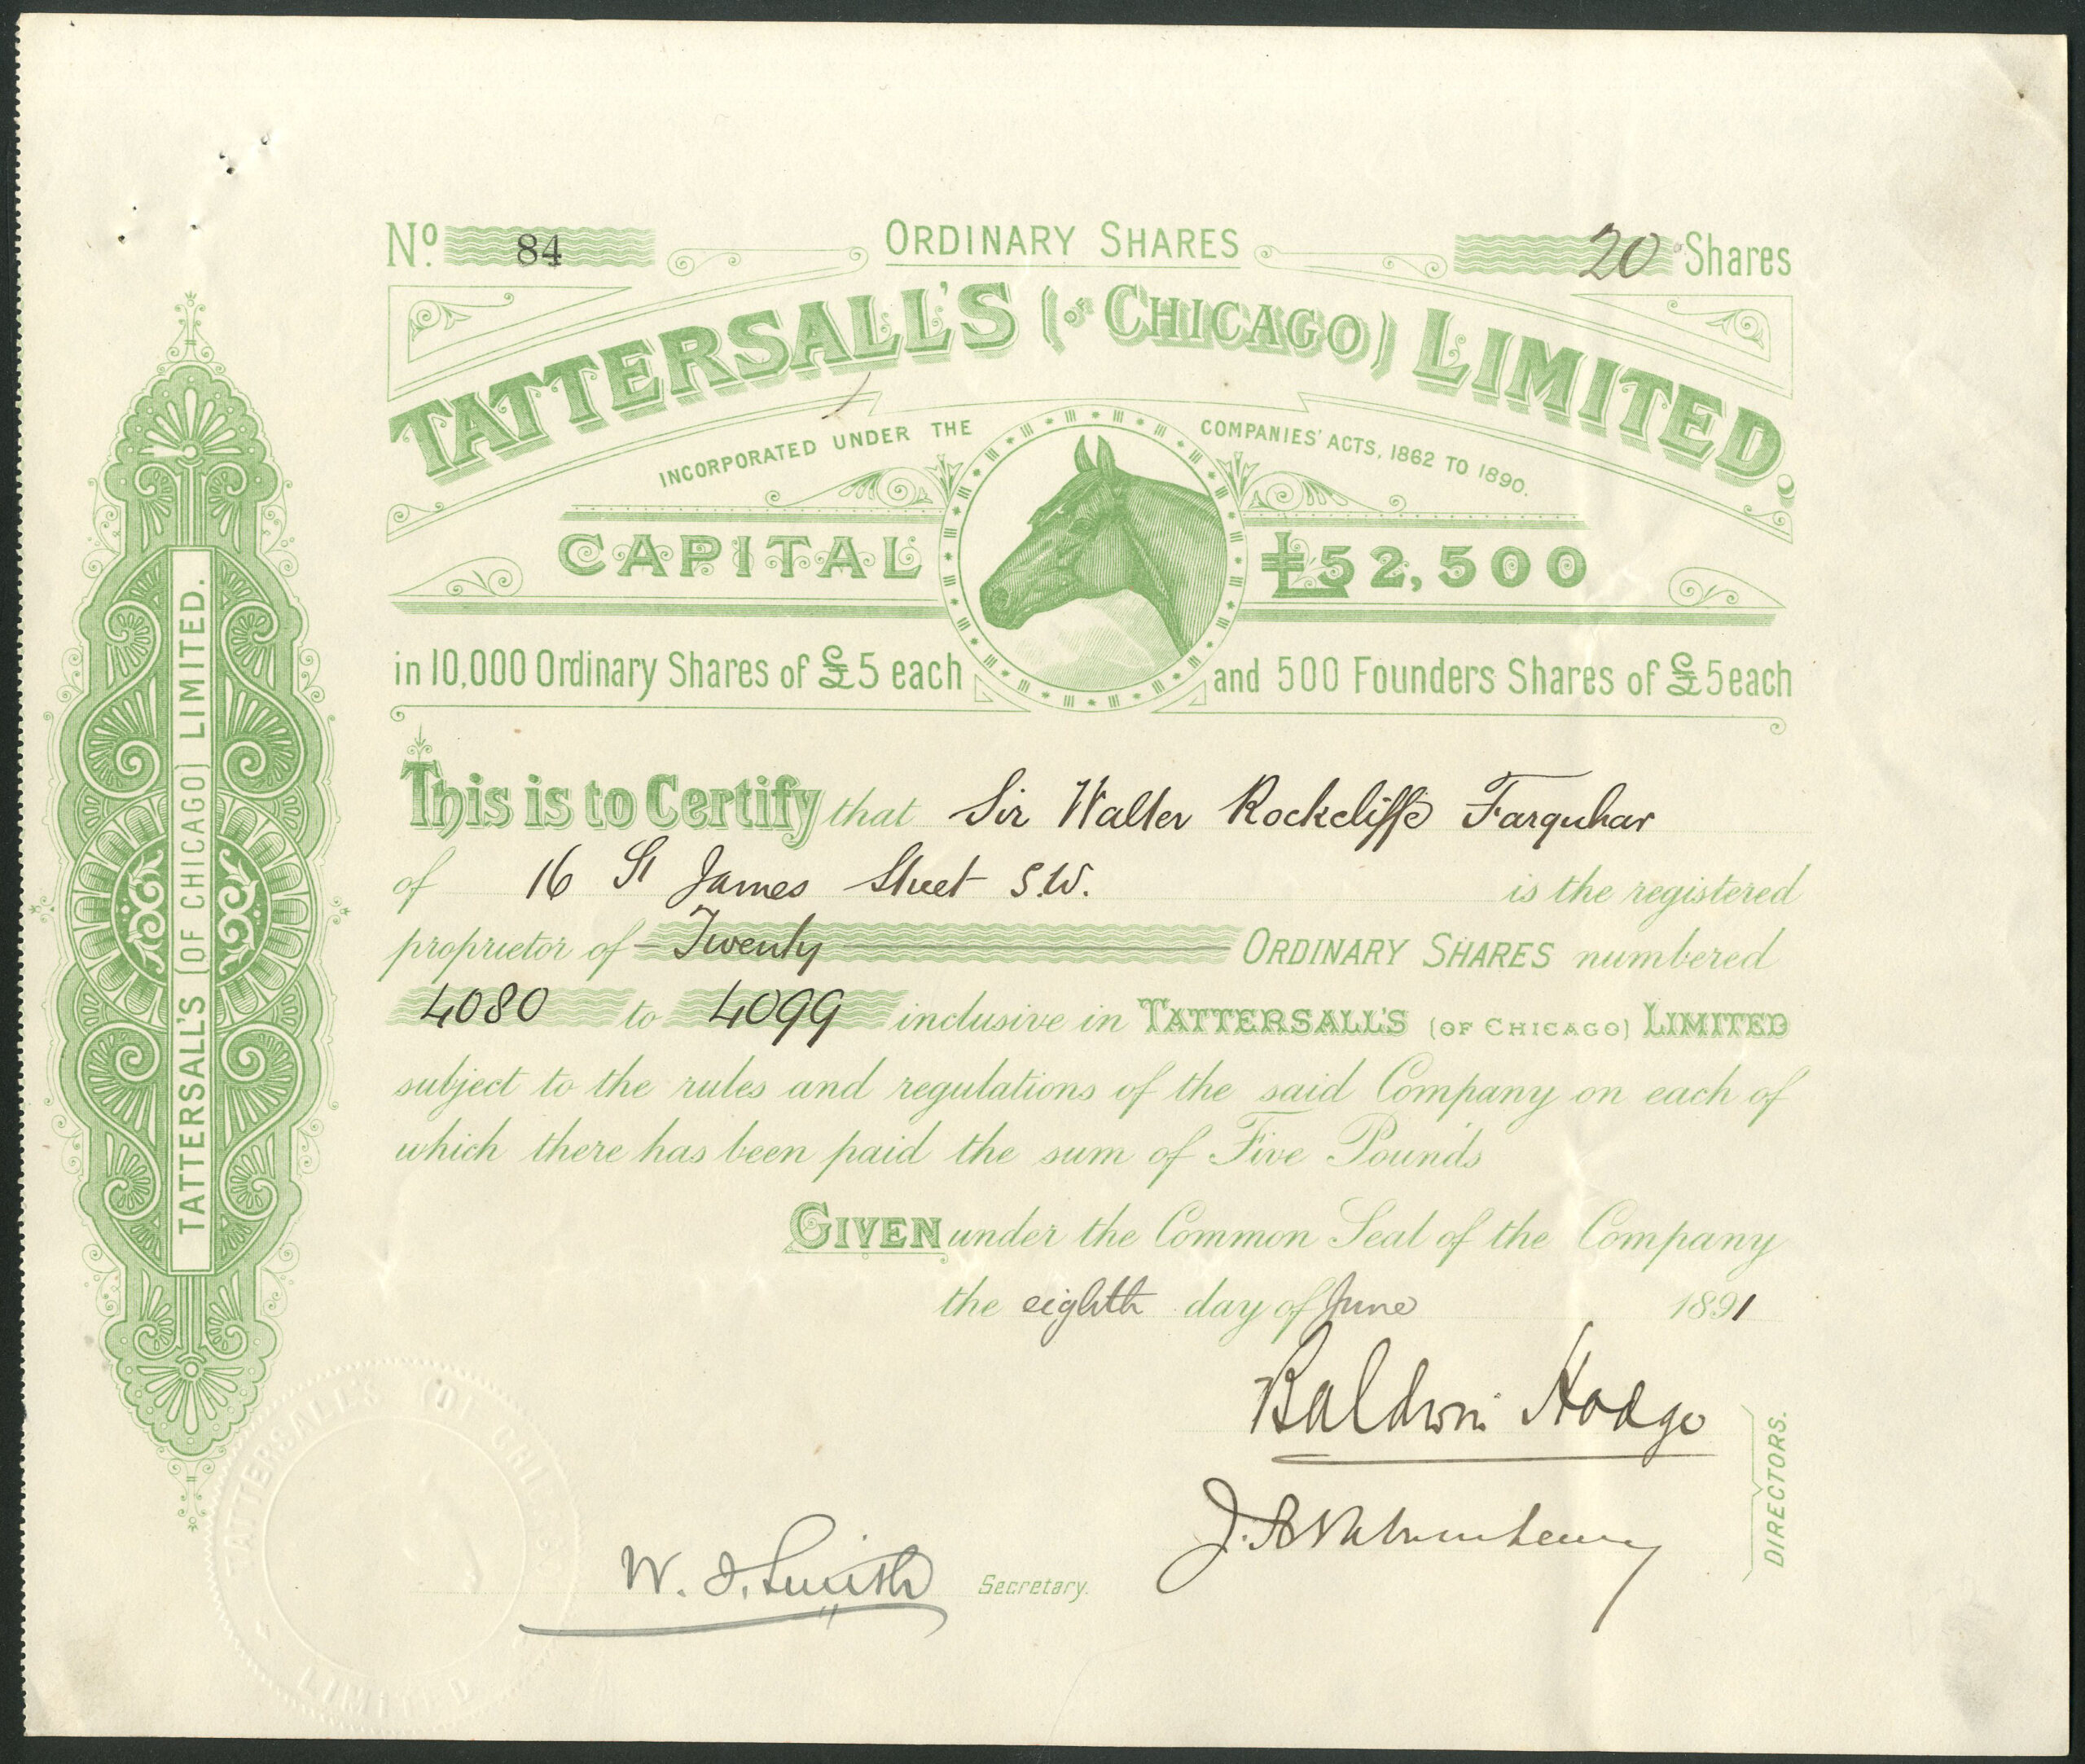 Nº. 84 ORDINARY SHARES 20 Shares
TATTERSALL'S (OF CHICAGO) LIMITED.
INCORPORATED UNDER THE COMPANIES' ACTS, 1862 TO 1890.
CAPITAL £52,500
in 10,000 Ordinary Shares of £5 each and 500 Founders Shares of £5 each
This is to Certify that Sir Walter Rockcliffe Farquhar
of 16 St James Street S.W. is the registered
proprietor of Twenty ORDINARY SHARES numbered
4080 to 4099 inclusive in TATTERSALL'S (OF CHICAGO) LIMITED
subject to the rules and regulations of the said Company on each of
which there has been paid the sum of Five Pounds
GIVEN under the Common Seal of the Company
the eighth day of June 1891
Baldwin Hodge
J.
DIRECTORS.
W. J. Smith Secretary.
TATTERSALL'S (OF CHICAGO) LIMITED.
TATTERSALL'S (OF CHICAGO)
LIMITED